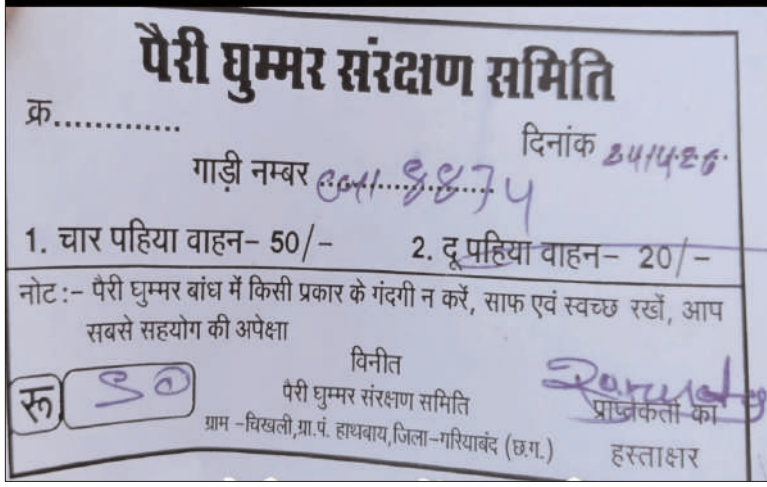 पैरी घुम्मर संरक्षण समिति
क्र.............
दिनांक 24/4.26.
गाड़ी नम्बर 8874
1. चार पहिया वाहन- 50/- 2. दू पहिया वाहन- 20/-
नोट :- पैरी घुम्मर बांध में किसी प्रकार के गंदगी न करें, साफ एवं स्वच्छ रखें, आप
सबसे सहयोग की अपेक्षा
विनीत
रू 50
पैरी घुम्मर संरक्षण समिति
ग्राम -चिखली,ग्रा.पं. हाथबाय,जिला-गरियाबंद (छ.ग.)
प्राप्तकर्ता का
हस्ताक्षर